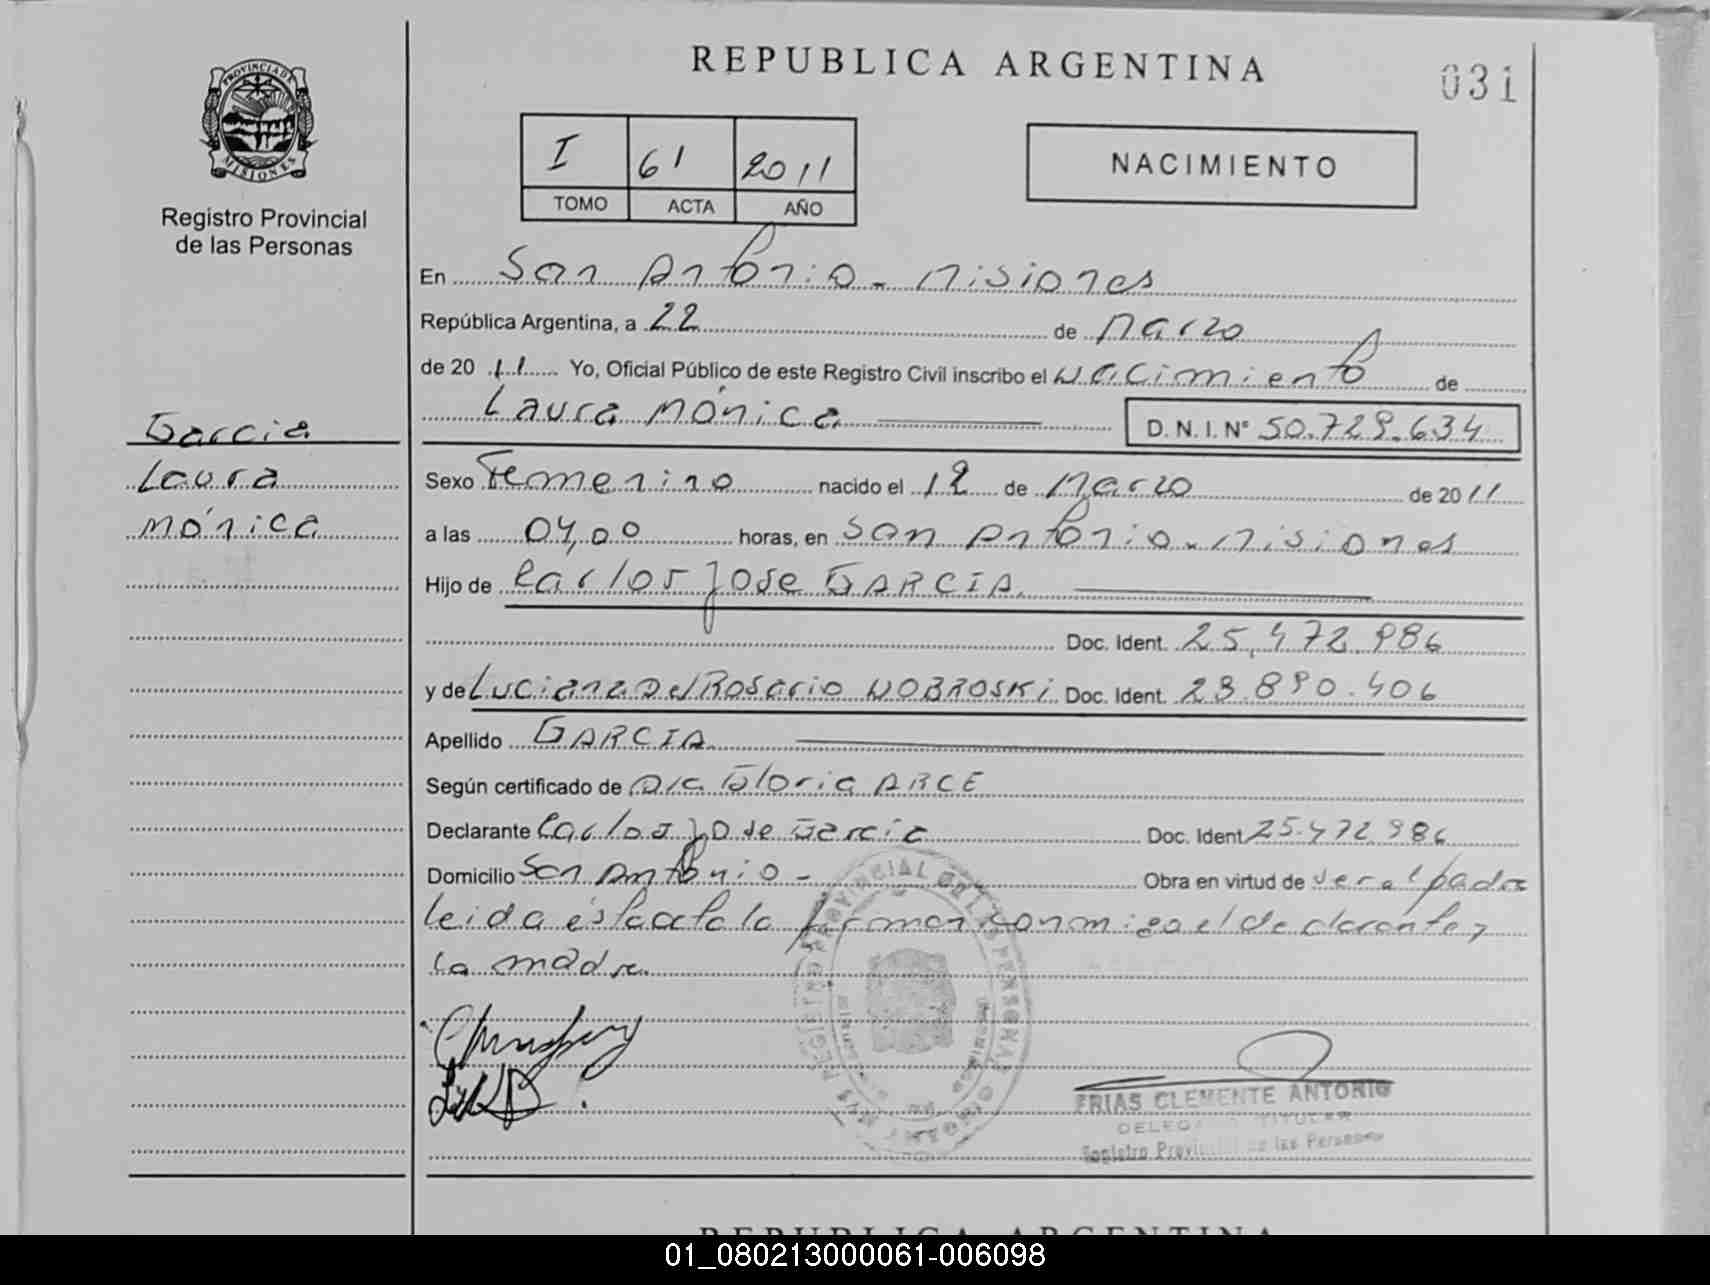 REPUBLICA ARGENTINA
031
PROVINCIA DE MISIONES
Registro Provincial
de las Personas
I 61 2011
TOMO ACTA AÑO
NACIMIENTO
En San Antonio - Misiones
República Argentina, a 22 de Marzo
de 2011 Yo, Oficial Público de este Registro Civil inscribo el Nacimiento de
Laura Mónica D. N. I. N° 50.729.634
Garcia
Laura
Mónica
Sexo Femenino nacido el 12 de Marzo de 2011
a las 04,00 horas, en San Antonio - Misiones
Hijo de Carlos Jose GARCIA.
Doc. Ident. 25.472.986
y de Luciana Del Rosario WOBROSKi Doc. Ident. 23.890.406
Apellido GARCIA
Según certificado de Gloria ARCE
Declarante Carlos Jose Garcia Doc. Ident. 25.472.986
Domicilio San Antonio - Obra en virtud de ser el padre
leida ésta acta la firman conmigo el declarante y
la madre.
FRIAS CLEMENTE ANTONIO
DELEGADO TITULAR
Registro Provincial de las Personas
REPUBLICA ARGENTINA
01_080213000061-006098